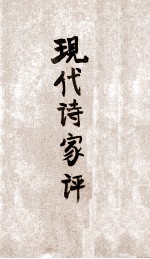 現代诗家评